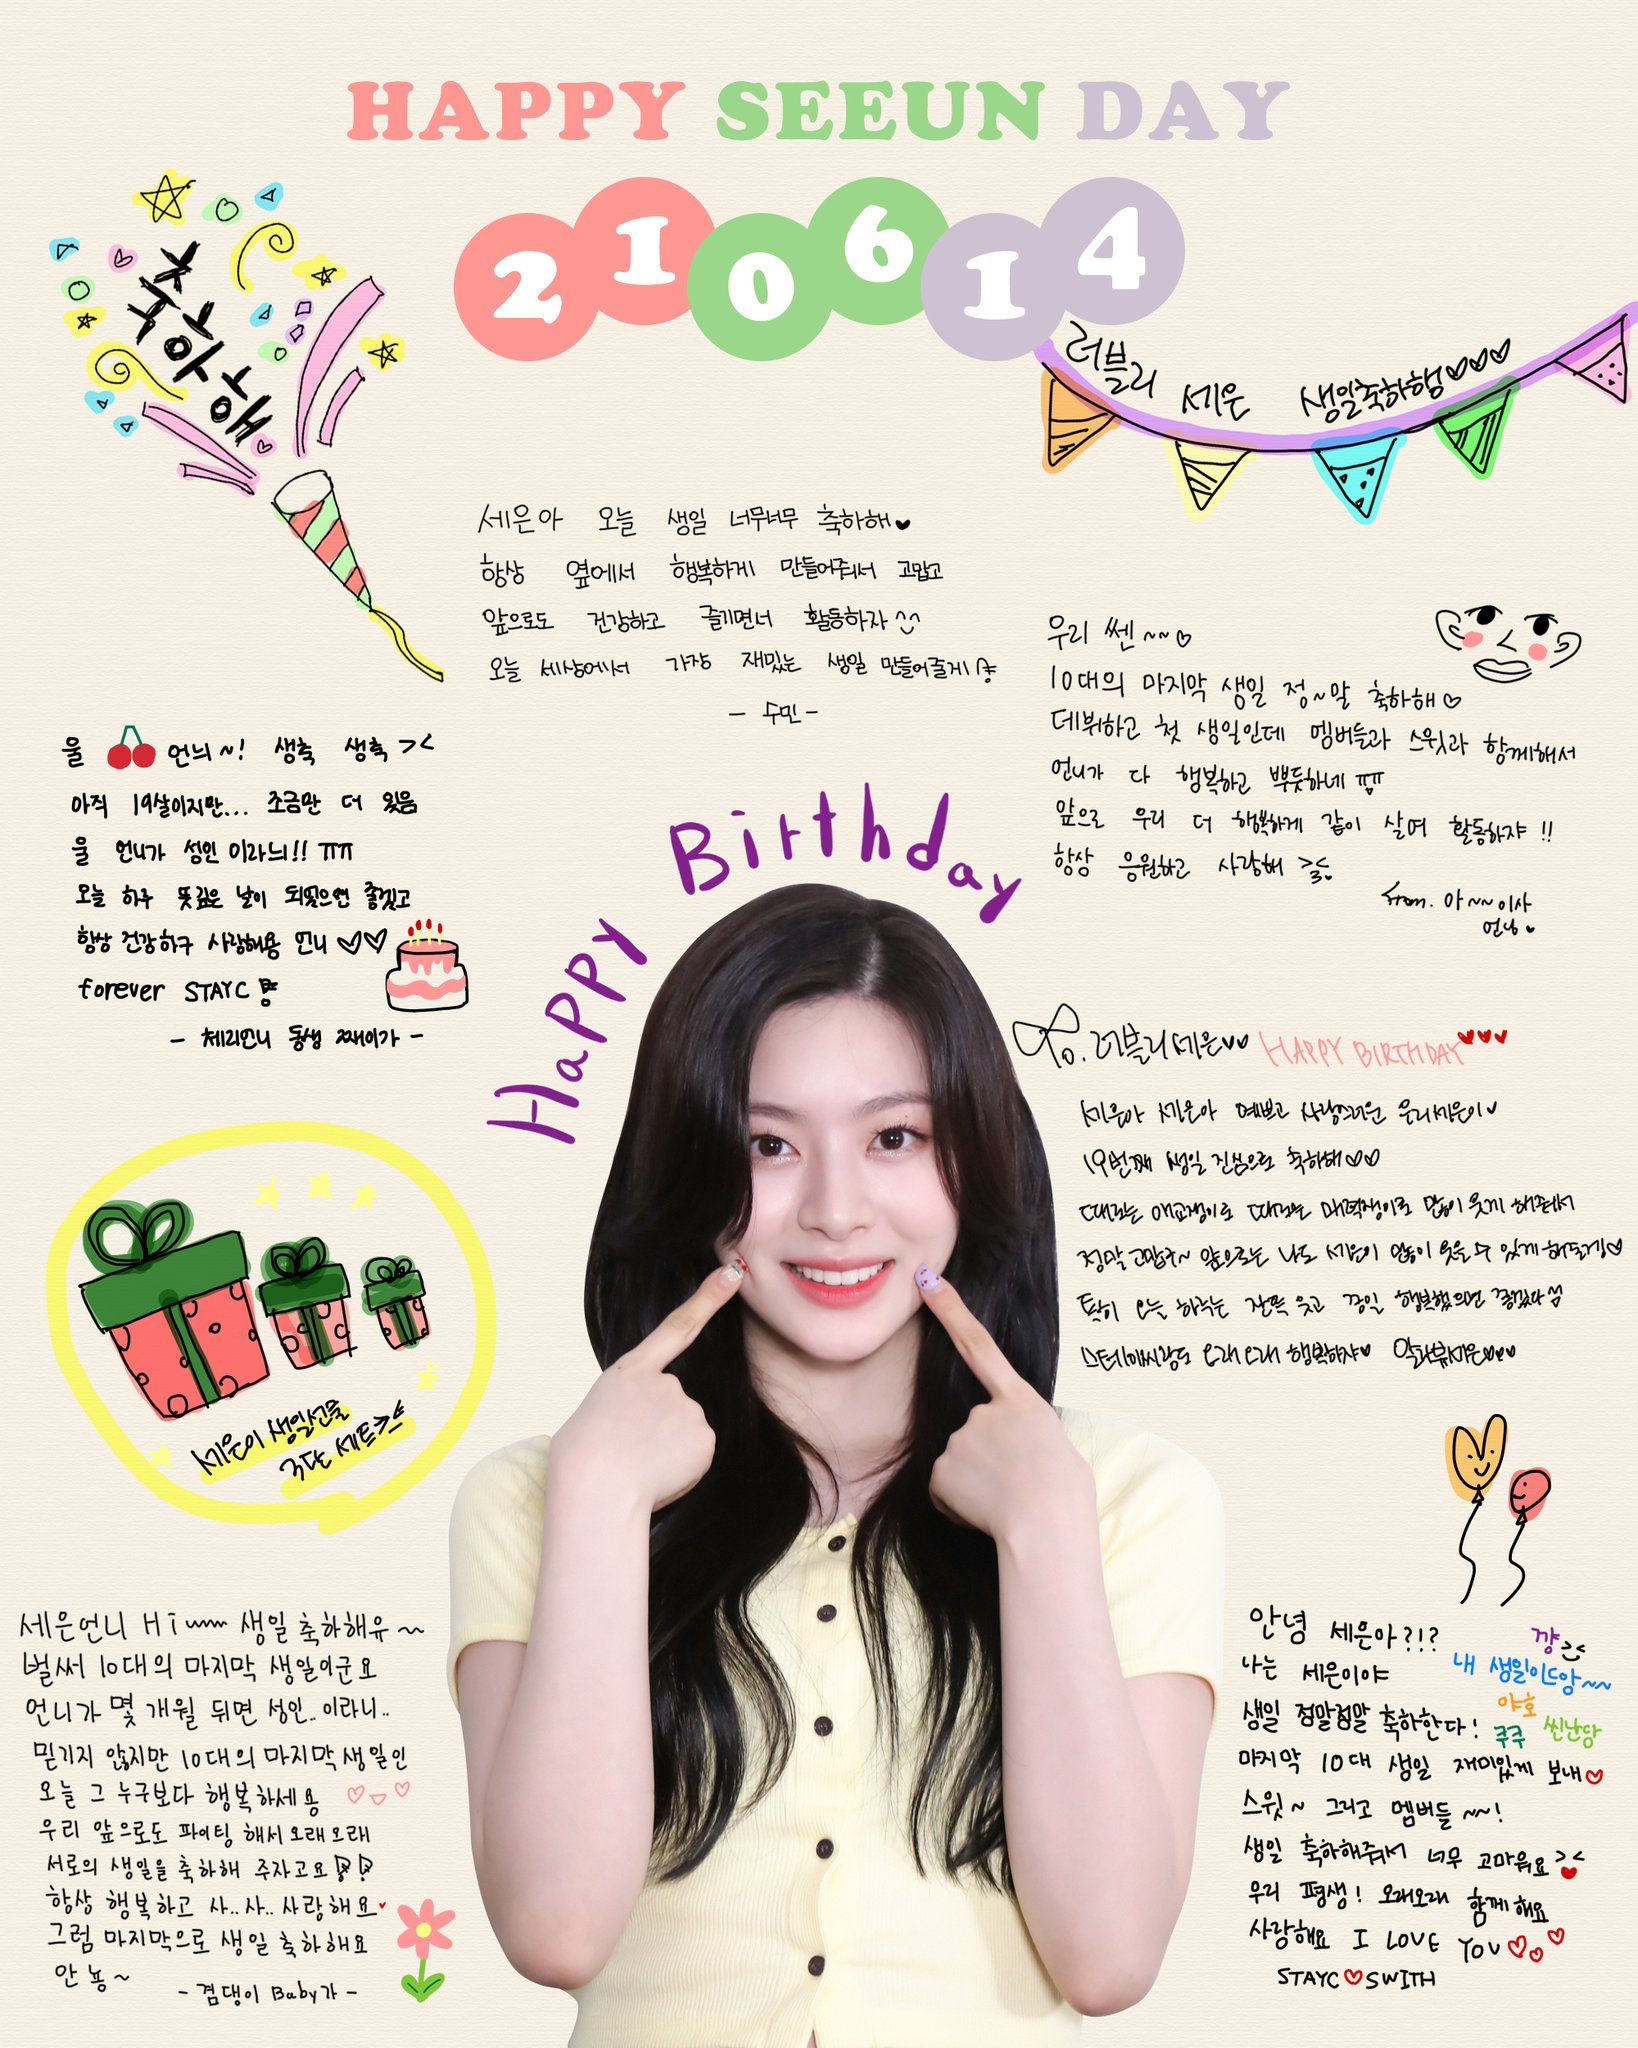 HAPPY SEEUN DAY
210614
축하해
러블리 세은 생일축하행♡♡♡
세은아 오늘 생일 너무너무 축하해♥
항상 옆에서 행복하게 만들어줘서 고맙고
앞으로도 건강하고 즐기면서 활동하자^^
오늘 세상에서 가장 재밌는 생일 만들어줄게
- 수민 -
우리 쎈~~♡
10대의 마지막 생일 정~말 축하해♡
데뷔하고 첫 생일인데 멤버들과 스윗과 함께해서
언니가 다 행복하고 뿌듯하네 ㅠㅠ
앞으로 우리 더 행복하게 같이 살며 활동하쟈!!
항상 응원하고 사랑해
from. 아~~이사
언닝♥
울 언늬~! 생축 생축 ><
아직 19살이지만... 조금만 더 있음
울 언니가 성인이라늬!! ㅠㅠ
오늘 하루 뜻깊은 날이 되었으면 좋겠고
항상 건강하구 사랑해용 언니 ♡♡
forever STAYC
- 체리언니 동생 째이가 -
Happy Birthday
To. 러블리세은♥♥ HAPPY BIRTHDAY♥♥♥
세은아 세은아 예쁘고 사랑스러운 우리세은이♥
19번째 생일 진심으로 축하해♡♡
때로는 애교쟁이로 때로는 매력쟁이로 많이 웃게 해줘서
정말 고맙구~ 앞으로는 나도 세은이 많이 웃을 수 있게 해줄게♡
특히 오늘 하루는 잔뜩 웃고 종일 행복했으면 좋겠다
스테이씨랑도 오래오래 행복하쟈♥ 알라뷰세은♡♥♥
세은이 생일선물
3단 세트><
세은언니 Hi 생일 축하해유~
벌써 10대의 마지막 생일이군요
언니가 몇 개월 뒤면 성인.. 이라니..
믿기지 않지만 10대의 마지막 생일인
오늘 그 누구보다 행복하세용 ♡♡♡
우리 앞으로도 파이팅 해서 오래오래
서로의 생일을 축하해 주자고요
항상 행복하고 사..사..사랑해요♥
그럼 마지막으로 생일 축하해요
안뇽~
- 겸댕이 Baby가 -
안녕 세은아?!?
꺙><
나는 세은이야
내 생일이드앙~~
야호
생일 정말정말 축하한다!
쿠쿠 씐난당
마지막 10대 생일 재미있게 보내♡
스윗~ 그리고 멤버들~~!
생일 축하해줘서 너무 고마워요><♥
우리 평생! 오래오래 함께해요
사랑해요 I LOVE YOU♡♡♡
STAYC♡SWITH